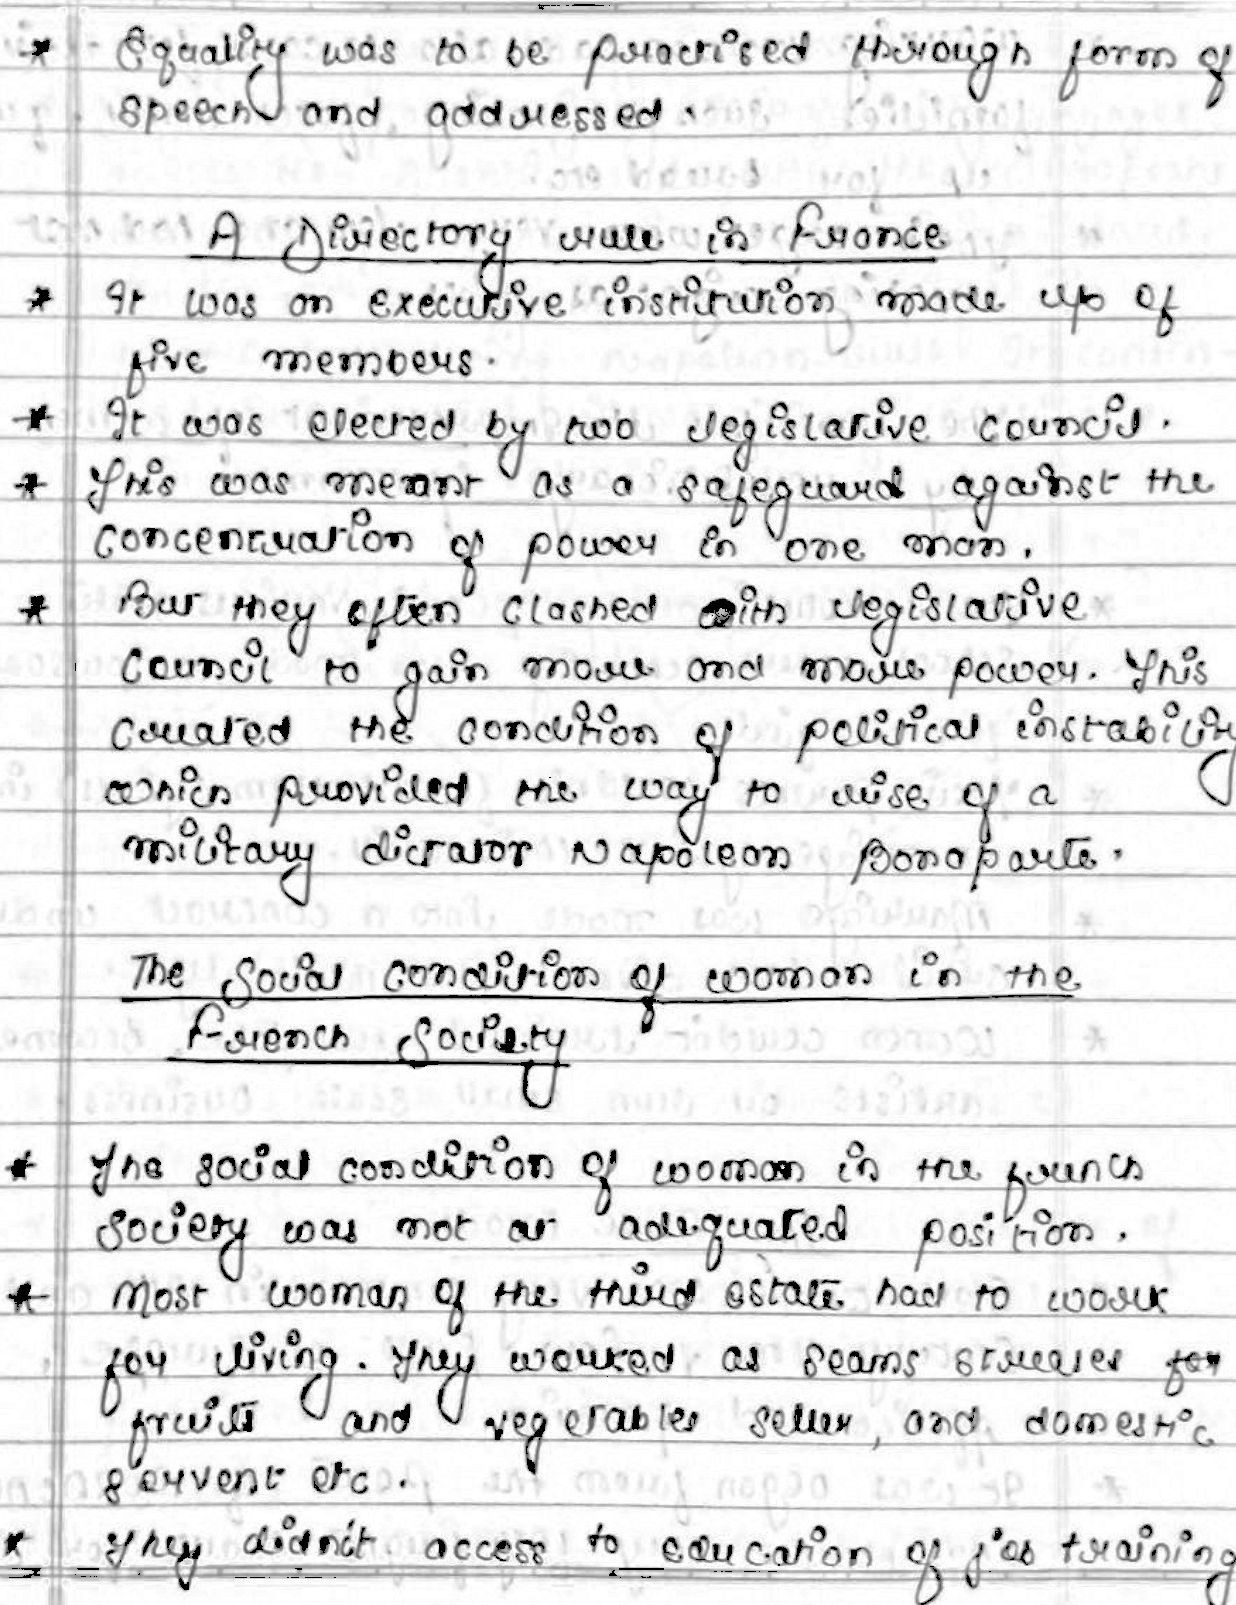 * Equality was to be practised through form of
speech and addressed.
A Directory rule in France
* It was an executive institution made up of
five members.
* It was elected by two legislative council.
* This was meant as a safeguard against the
concentration of power in one man.
* But they often clashed with legislative
council to gain more and more power. This
created the condition of political instability
which provided the way to rise of a
military dictator Napoleon Bonaparte.
The Social condition of woman in the
French Society
* The social condition of woman in the french
society was not at adequated position.
* Most woman of the third estate had to work
for living. They worked as seams streeses for
fruits and vegetables seller, and domestic
servent etc.
* They didn't access to education of job training